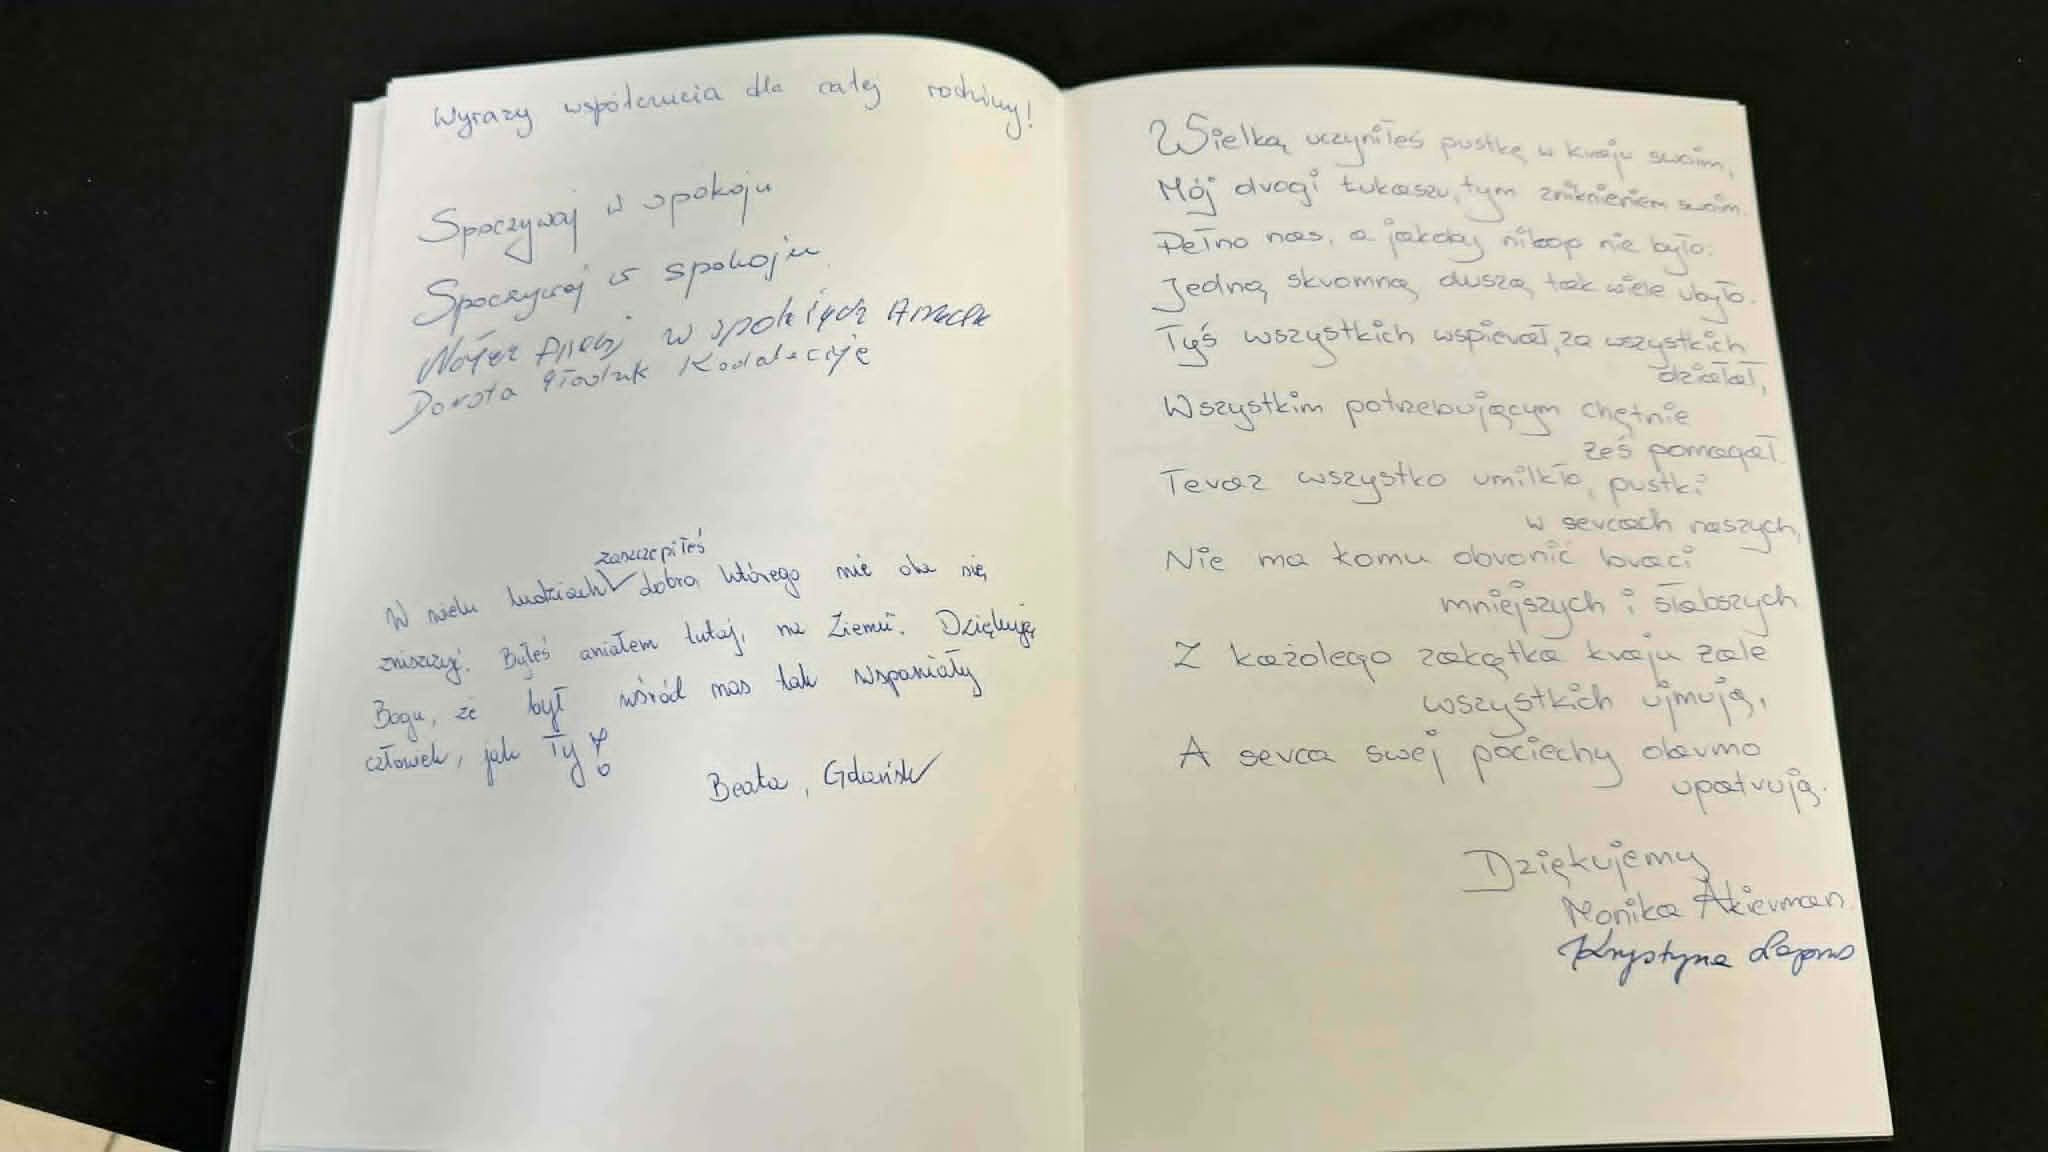 Wyrazy współczucia dla całej rodziny!
Spoczywaj w spokoju
Spoczywaj w spokoju
w
Dorota
zaszczepiłeś
W wielu ludziach dobra którego nie da się
zniszczyć. Byłeś aniałem tutaj, na Ziemii. Dziękuję
Bogu, że był wśród nas tak wspaniały
człowiek, jak Ty!
Beata, Gdańsk
Wielką uczyniłeś pustkę w kraju swoim,
Mój drogi Łukaszu, tym zniknieniem swoim.
Pełno nas, a jakoby nikogo nie było:
Jedną skromną duszą tak wiele ubyło.
Tyś wszystkich wspierał, za wszystkich
działał,
Wszystkim potrzebującym chętnie
żeś pomagał.
Teraz wszystko umilkło, pustki
w sercach naszych,
Nie ma komu obronić braci
mniejszych i słabszych
Z każdego zakątka kraju żale
wszystkich ujmują,
A serca swej pociechy darmo
upatrują.
Dziękujemy
Monika Akierman
Krystyna